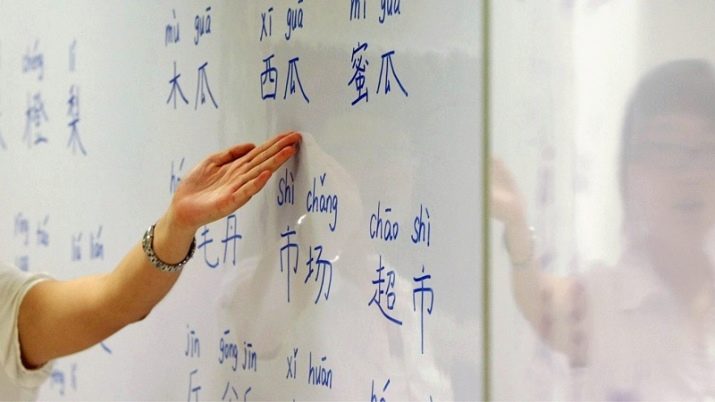 chéng lí mù guā xī guā mì guā
橙 梨 木瓜 西瓜 蜜瓜
liú lián shì chǎng chāo shì
毛丹 市场 超市
jīn gōng jīn xǐ huān